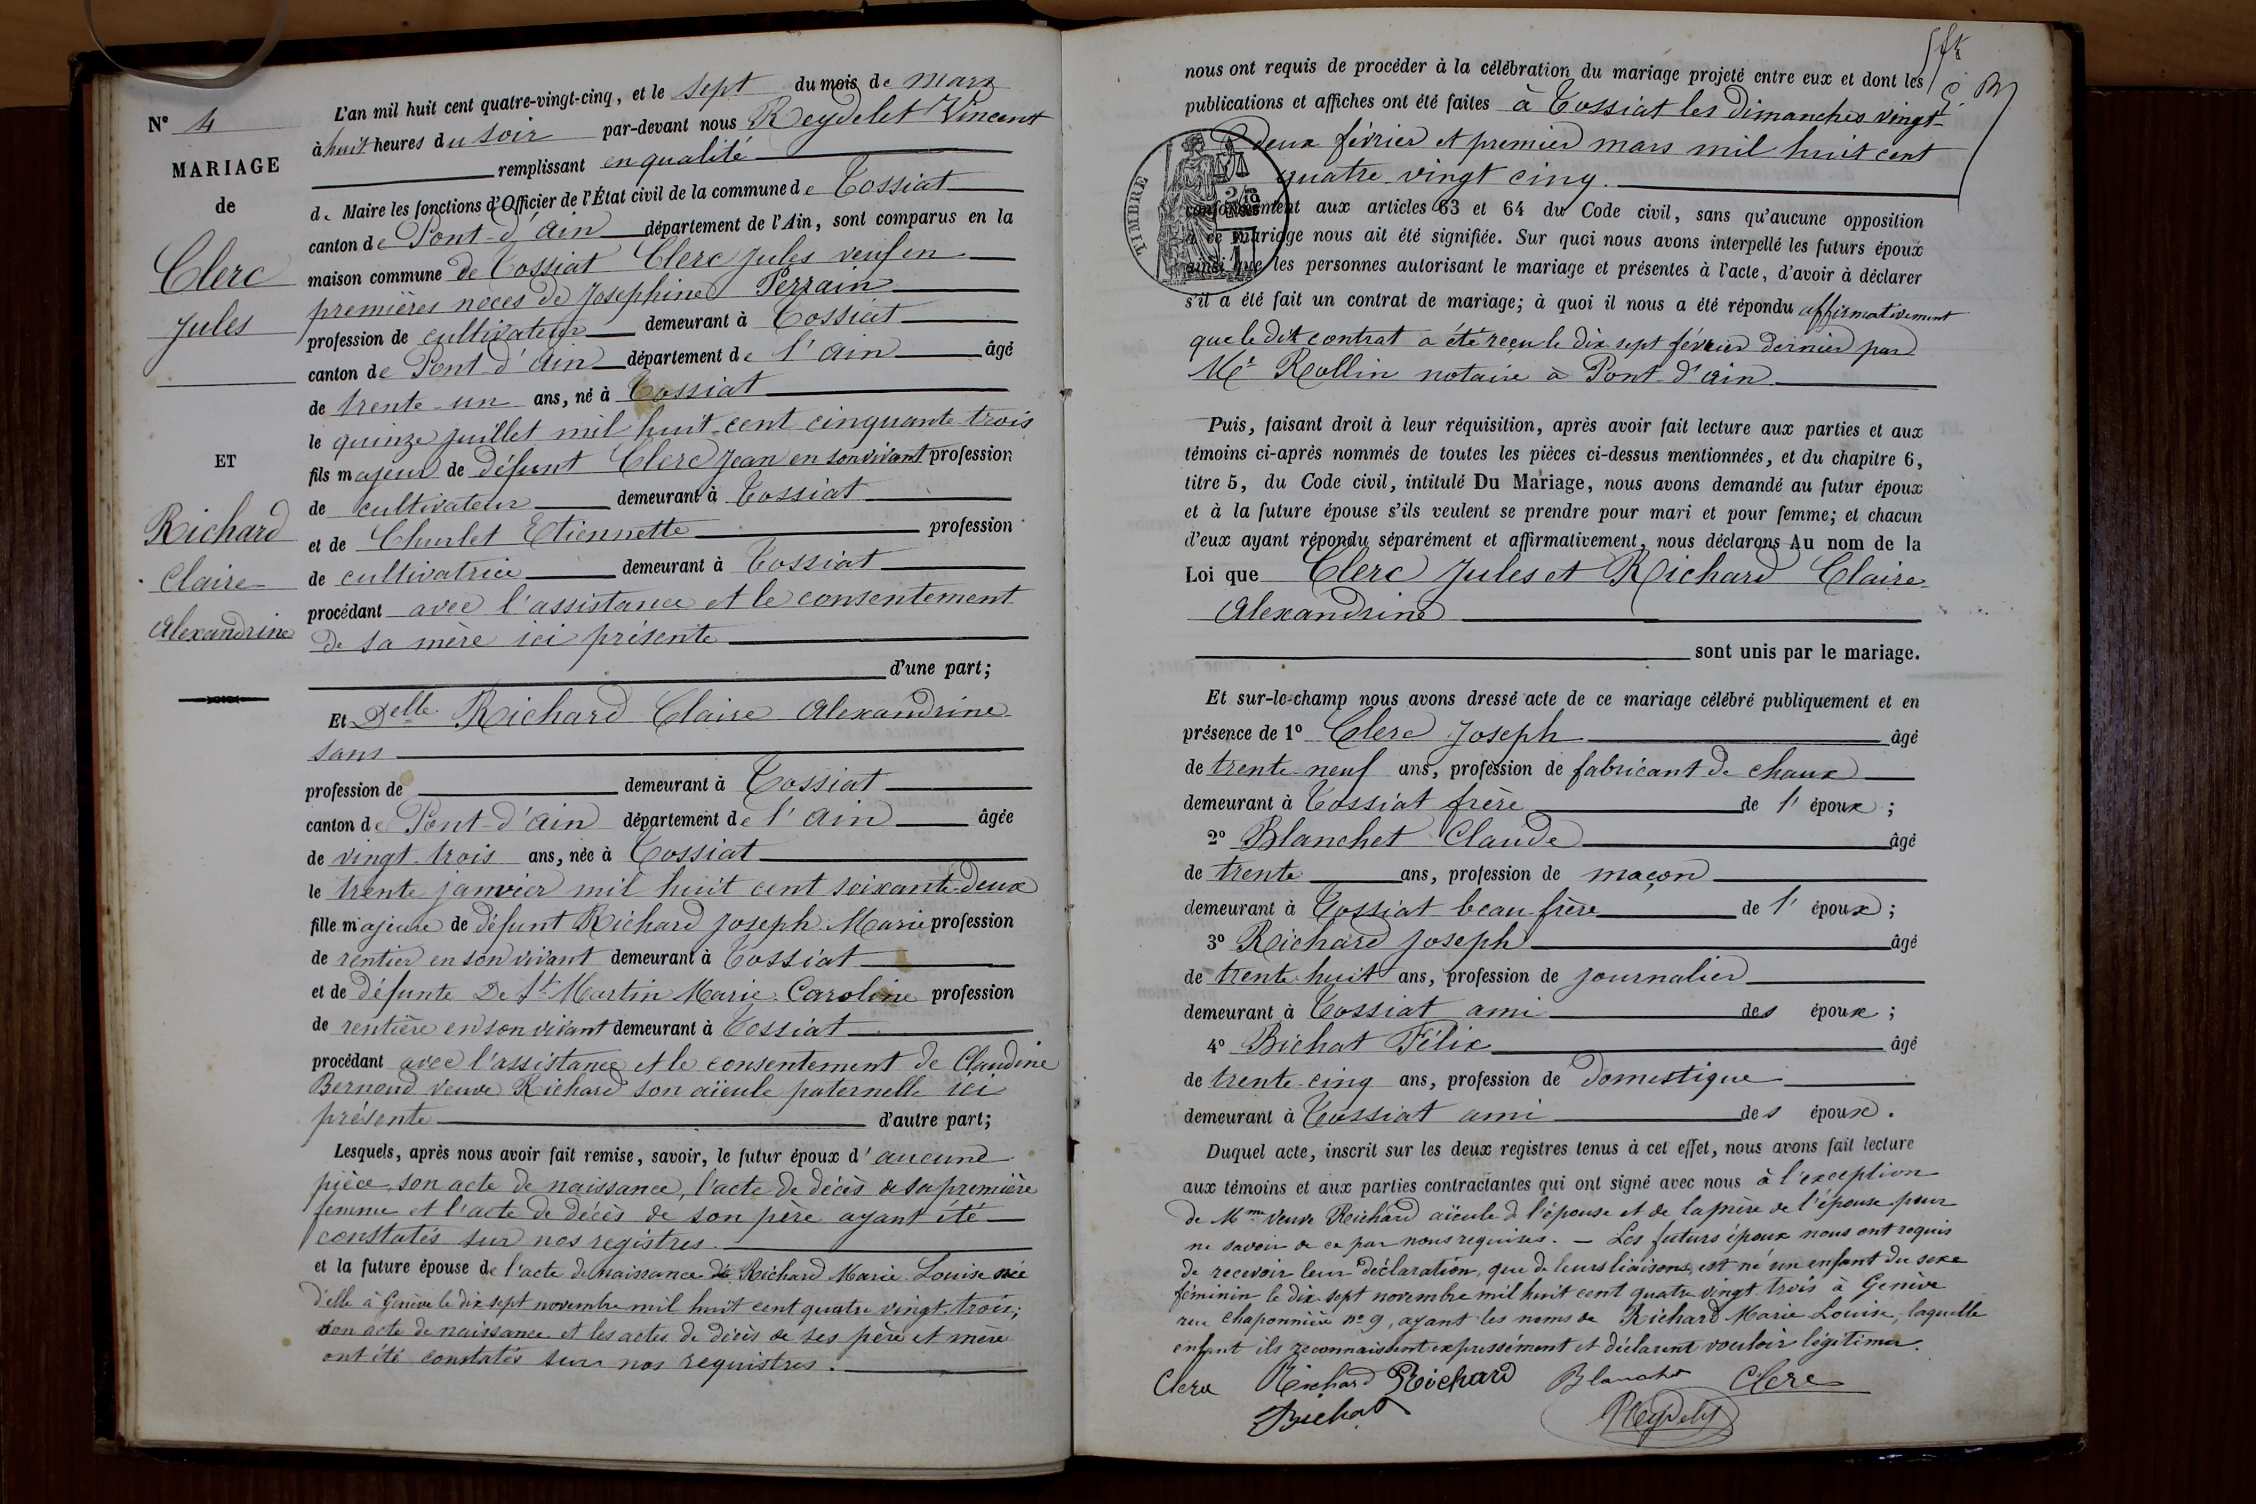 N° 4
MARIAGE
de
Clerc
Jules
ET
Richard
Claire
Alexandrine
L'an mil huit cent quatre-vingt-cinq, et le sept du mois de mars
à huit heures du soir par-devant nous Reydelet Vincent
remplissant en qualité
de Maire les fonctions d'Officier de l'État civil de la commune de Tossiat
canton de Pont-d'Ain département de l'Ain, sont comparus en la
maison commune de Tossiat Clerc Jules veuf en
premières noces de Josephine Perrain
profession de cultivateur demeurant à Tossiat
canton de Pont d'Ain département de l'Ain âgé
de trente-un ans, né à Tossiat
le quinze juillet mil huit cent cinquante trois
fils majeur de défunt Clerc Jean en son vivant profession
de cultivateur demeurant à Tossiat
et de Churlet Etiennette profession
de cultivatrice demeurant à Tossiat
procédant avec l'assistance et le consentement
de sa mère ici présente
d'une part;
Et Delle Richard Claire Alexandrine
sans
profession de demeurant à Tossiat
canton de Pont-d'Ain département de l'Ain âgée
de vingt trois ans, née à Tossiat
le trente janvier mil huit cent soixante-deux
fille majeure de défunt Richard Joseph Marie profession
de rentier en son vivant demeurant à Tossiat
et de défunte De St Martin Marie Caroline profession
de rentière en son vivant demeurant à Tossiat
procédant avec l'assistance et le consentement de Claudine
Bernoud veuve Richard son aïeule paternelle ici
présente d'autre part;
Lesquels, après nous avoir fait remise, savoir, le futur époux d'aucune
pièce, son acte de naissance, l'acte de décès de sa première
femme et l'acte de décès de son père ayant été
constatés sur nos registres.
et la future épouse de l'acte de naissance de Richard Marie Louise née
d'elle à Genève le dix sept novembre mil huit cent quatre vingt trois;
son acte de naissance et les actes de décès de ses père et mère
ont été constatés sur nos requistres.
nous ont requis de procéder à la célébration du mariage projeté entre eux et dont les
publications et affiches ont été faites à Tossiat les dimanches vingt-
deux février et premier mars mil huit cent
quatre-vingt cinq.
TIMBRE
conformément aux articles 63 et 64 du Code civil, sans qu'aucune opposition
à ce mariage nous ait été signifiée. Sur quoi nous avons interpellé les futurs époux
ainsi que les personnes autorisant le mariage et présentes à l'acte, d'avoir à déclarer
s'il a été fait un contrat de mariage; à quoi il nous a été répondu affirmativement
que le dit contrat a été reçu le dix sept février dernier par
Me Rollin notaire à Pont-d'Ain
Puis, faisant droit à leur réquisition, après avoir fait lecture aux parties et aux
témoins ci-après nommés de toutes les pièces ci-dessus mentionnées, et du chapitre 6,
titre 5, du Code civil, intitulé Du Mariage, nous avons demandé au futur époux
et à la future épouse s'ils veulent se prendre pour mari et pour femme; et chacun
d'eux ayant répondu séparément et affirmativement, nous déclarons Au nom de la
Loi que Clerc Jules et Richard Claire
Alexandrine
sont unis par le mariage.
Et sur-le-champ nous avons dressé acte de ce mariage célébré publiquement et en
présence de 1° Clerc Joseph âgé
de trente-neuf ans, profession de fabricant de chaux
demeurant à Tossiat frère de l'époux;
2° Blanchet Claude âgé
de trente ans, profession de maçon
demeurant à Tossiat beau-frère de l'époux;
3° Richard Joseph âgé
de trente-huit ans, profession de journalier
demeurant à Tossiat ami des époux;
4° Bichat Félix âgé
de trente-cinq ans, profession de domestique
demeurant à Tossiat ami des époux.
Duquel acte, inscrit sur les deux registres tenus à cet effet, nous avons fait lecture
aux témoins et aux parties contractantes qui ont signé avec nous à l'exception
de Mme veuve Richard aïeule de l'épouse et de la mère de l'épouse pour
ne savoir de ce par nous requises. — Les futurs époux nous ont requis
de recevoir leur déclaration, que de leurs liaisons, est né un enfant du sexe
féminin le dix-sept novembre mil huit cent quatre vingt trois à Genève
rue Chaponnière n° 9, ayant les noms de Richard Marie Louise, laquelle
enfant ils reconnaissent expressément et déclarent vouloir légitimer.
Clerc Richard Richard Blanchet Clerc
Bichat Reydelet